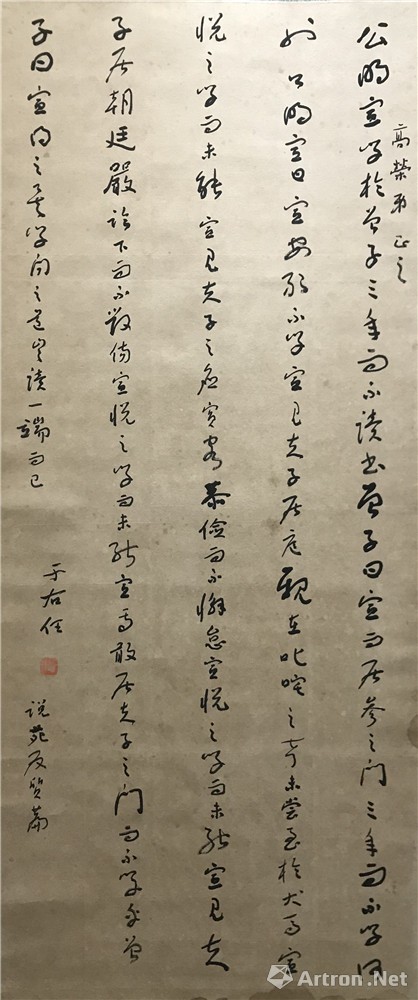 高榮弟正之
公明宣學於曾子三年而不讀書曾子曰宣而居參之門三年而不學何
也公明宣曰宣安敢不學宣見夫子居庭親在叱咤之聲未嘗至於犬馬宣
悅之學而未能宣見夫子之應賓客恭儉而不懈怠宣悅之學而未能宣見夫
子居朝廷嚴臨下而不毀傷宣悅之學而未能宣焉敢居夫子之門而不學乎曾
子曰宣得之矣學問之道豈讀一端而已
于右任
說苑反質篇
Artron.Net